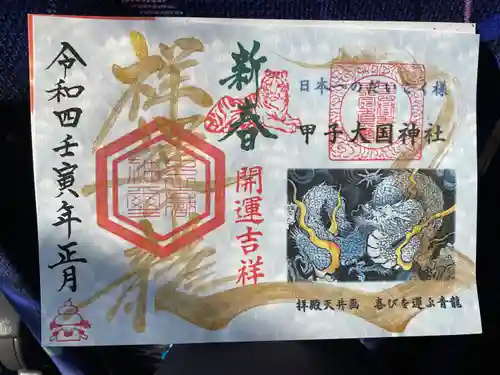 日本一のだいこく様
甲子大国神社
新春
開運吉祥
祥龍
令和四壬寅年正月
拝殿天井画 喜びを運ぶ青龍